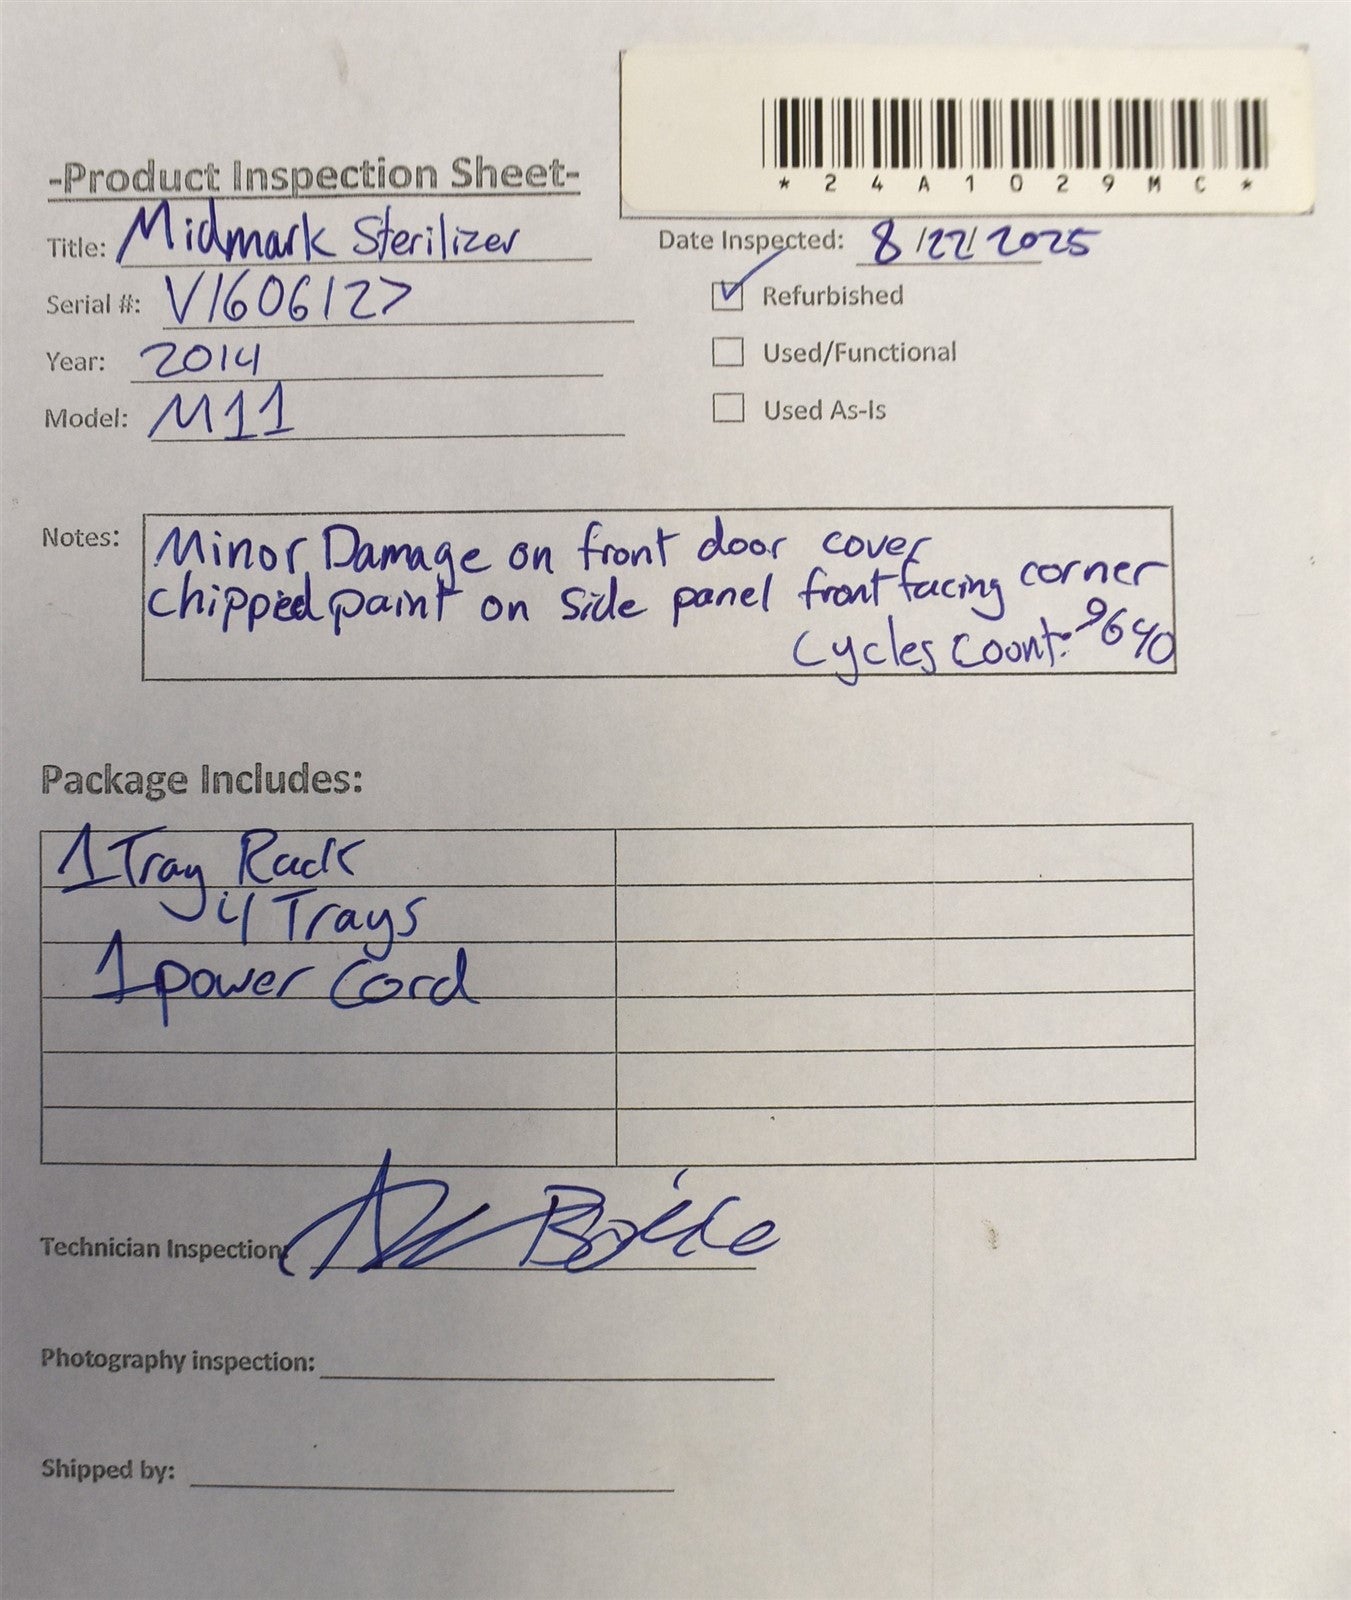 *24A1029MC*
-Product Inspection Sheet-
Title: Midmark Sterilizer
Date Inspected: 8/22/2025
Serial #: V1606127
Refurbished
Year: 2014
Used/Functional
Model: M11
Used As-Is
Notes: Minor Damage on front door cover
chipped paint on side panel front facing corner
Cycles Count: 9640
Package Includes:
1 Tray Rack
4 Trays
1 power Cord
Technician Inspection:
Photography inspection:
Shipped by: